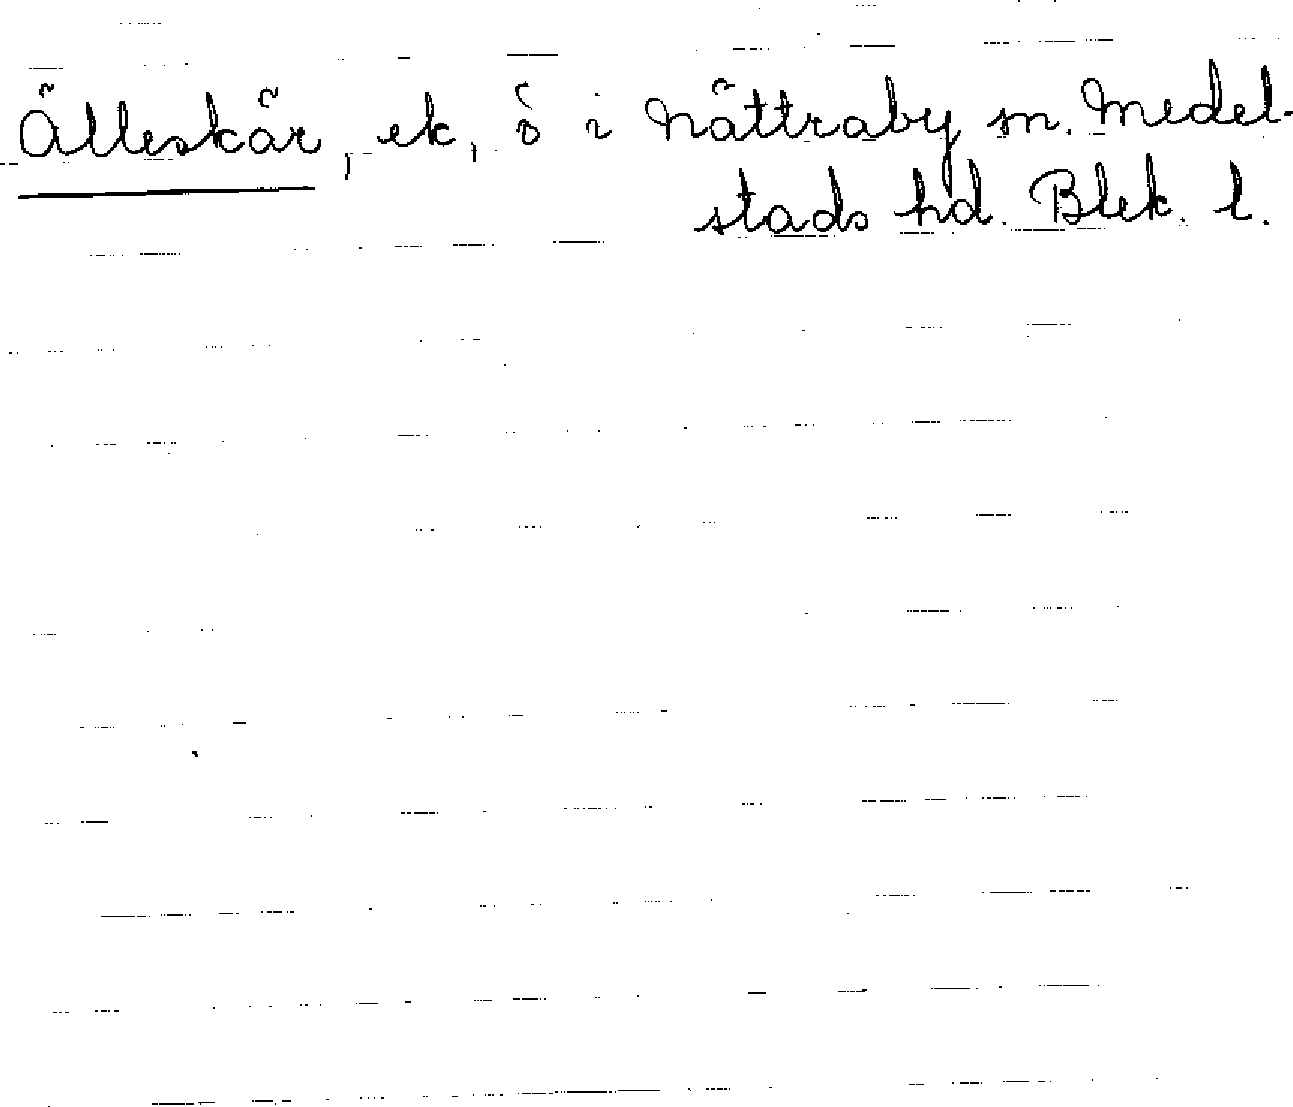 Älleskär, ek, ö i Nättraby sn. Medel-
stads hd. Blek. l.